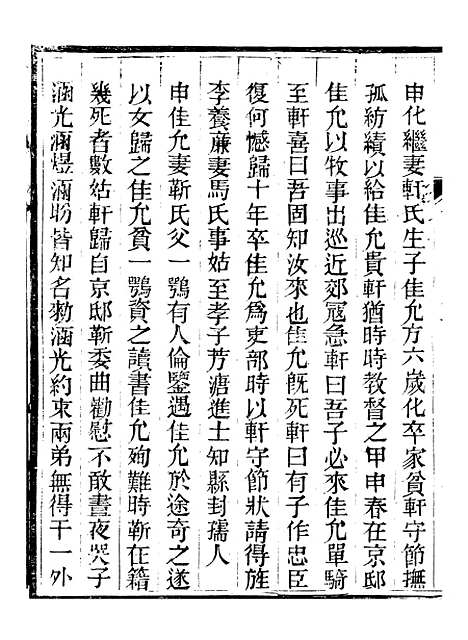 申化繼妻軒氏生子佳允方六歲化卒家貧軒守節撫
孤紡績以給佳允貴軒猶時時教督之甲申春在京邸
佳允以牧事出巡近郊寇急軒曰吾子必來佳允單騎
至軒喜曰吾固知汝來也佳允旣死軒曰有子作忠臣
復何憾歸十年卒佳允爲吏部時以軒守節狀請得旌
李養蕙妻馬氏事姑至孝子芳溏進士知縣封孺人
申佳允妻靳氏父一鶚有人倫鑒遇佳允於途奇之遂
以女歸之佳允貧一鶚資之讀書佳允殉難時靳在籍
幾死者數姑軒歸自京邸靳委曲勸慰不敢晝夜哭子
涵光涵煜涵盼皆知名勑涵光約束兩弟無得干一外